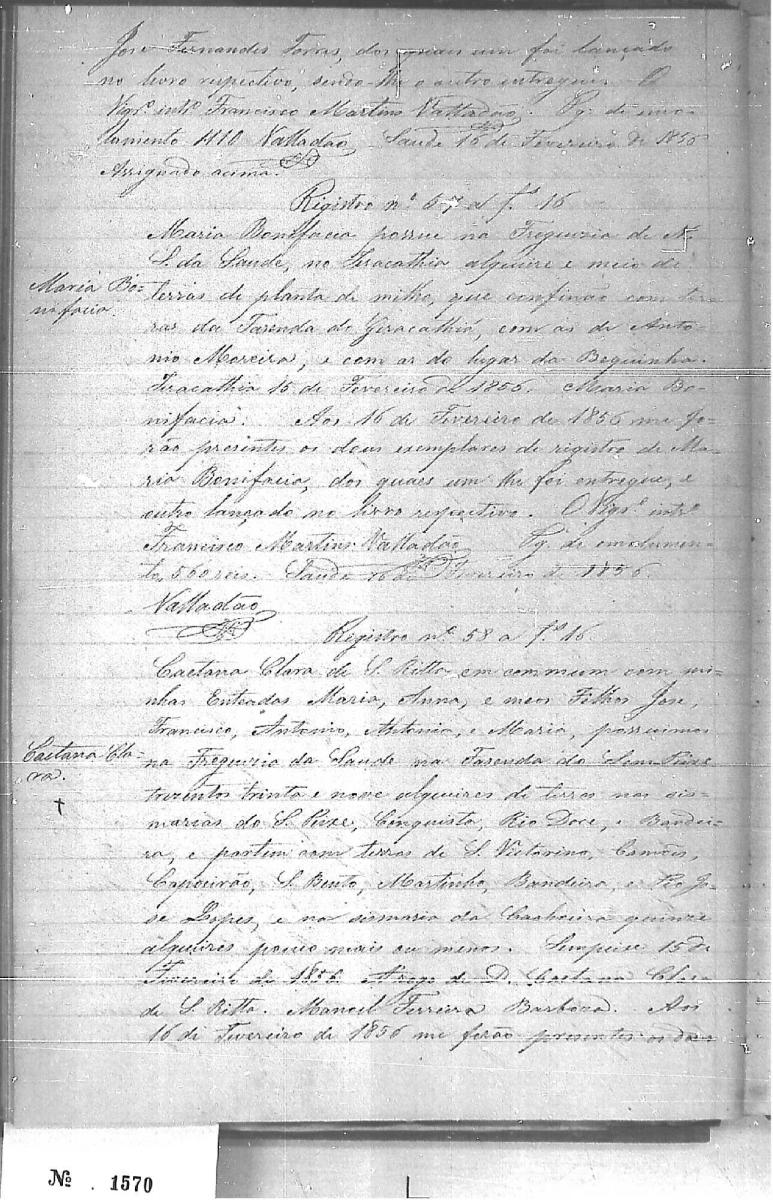 José Fernandes Torras, dos quais um foi lançado
no livro respectivo, sendo-lhe o outro entregue. O
Vigrº. intº. Francisco Martins Valladão. Pg. de emo-
lumento 1410 Valladão Saude 16 de Fevereiro de 1856
Assignado acima.
Registro nº 57 a fº 16
Maria Bonifacia possue na Freguezia de N.
S. da Saude, no Giracathia alqueire e meio de
Maria Bo-
nifacia.
terras de planta de milho, que confinão com ter-
ras da Fazenda do Giracathiá, com as de Anto-
nio Moreira, e com as do lugar da Bequinha.
Giracathia 15 de Fevereiro de 1856. Maria Bo-
nifacia. Aos 16 de Fevereiro de 1856 me fo-
rão presentes os dous exemplares de registro de Ma-
ria Bonifacia, dos quaes um lhe foi entregue, e
outro lançado no livro respectivo. O Vigrº intrº
Francisco Martins Valladão Pg. de emolumen-
to, 560 reis. Saude 16 de Fevereiro de 1856.
Valladão
Registro nº 58 a fº 16
Caetana Clara de S. Ritta em commum com mi-
nhas Enteadas Maria, Anna, e meos Filhos José,
Francisco, Antonio, Antonia, e Maria, possuimos
Caetana Cla-
ra.
na Freguezia da Saude na Fazenda do Sem Peixe
trezentos trinta e nove alqueires de terras nas sis-
marias do S. Peixe, Conquista, Rio Doce, e Bandei-
ra, e partem com terras de S. Victorino, Camões,
Capoeirão, S. Bento, Martinho, Bandeira, e Rio Jo-
se Lopes, e na sismaria da Cachoeira quinze
alqueires pouco mais ou menos. Sempeixe 15 de
Fevereiro de 1856. A rogo de D. Caetana Clara
de S. Ritta. Manoel Ferreira Barboza. Aos
16 de Fevereiro de 1856 me forão presentes os dous
Nº. 1570